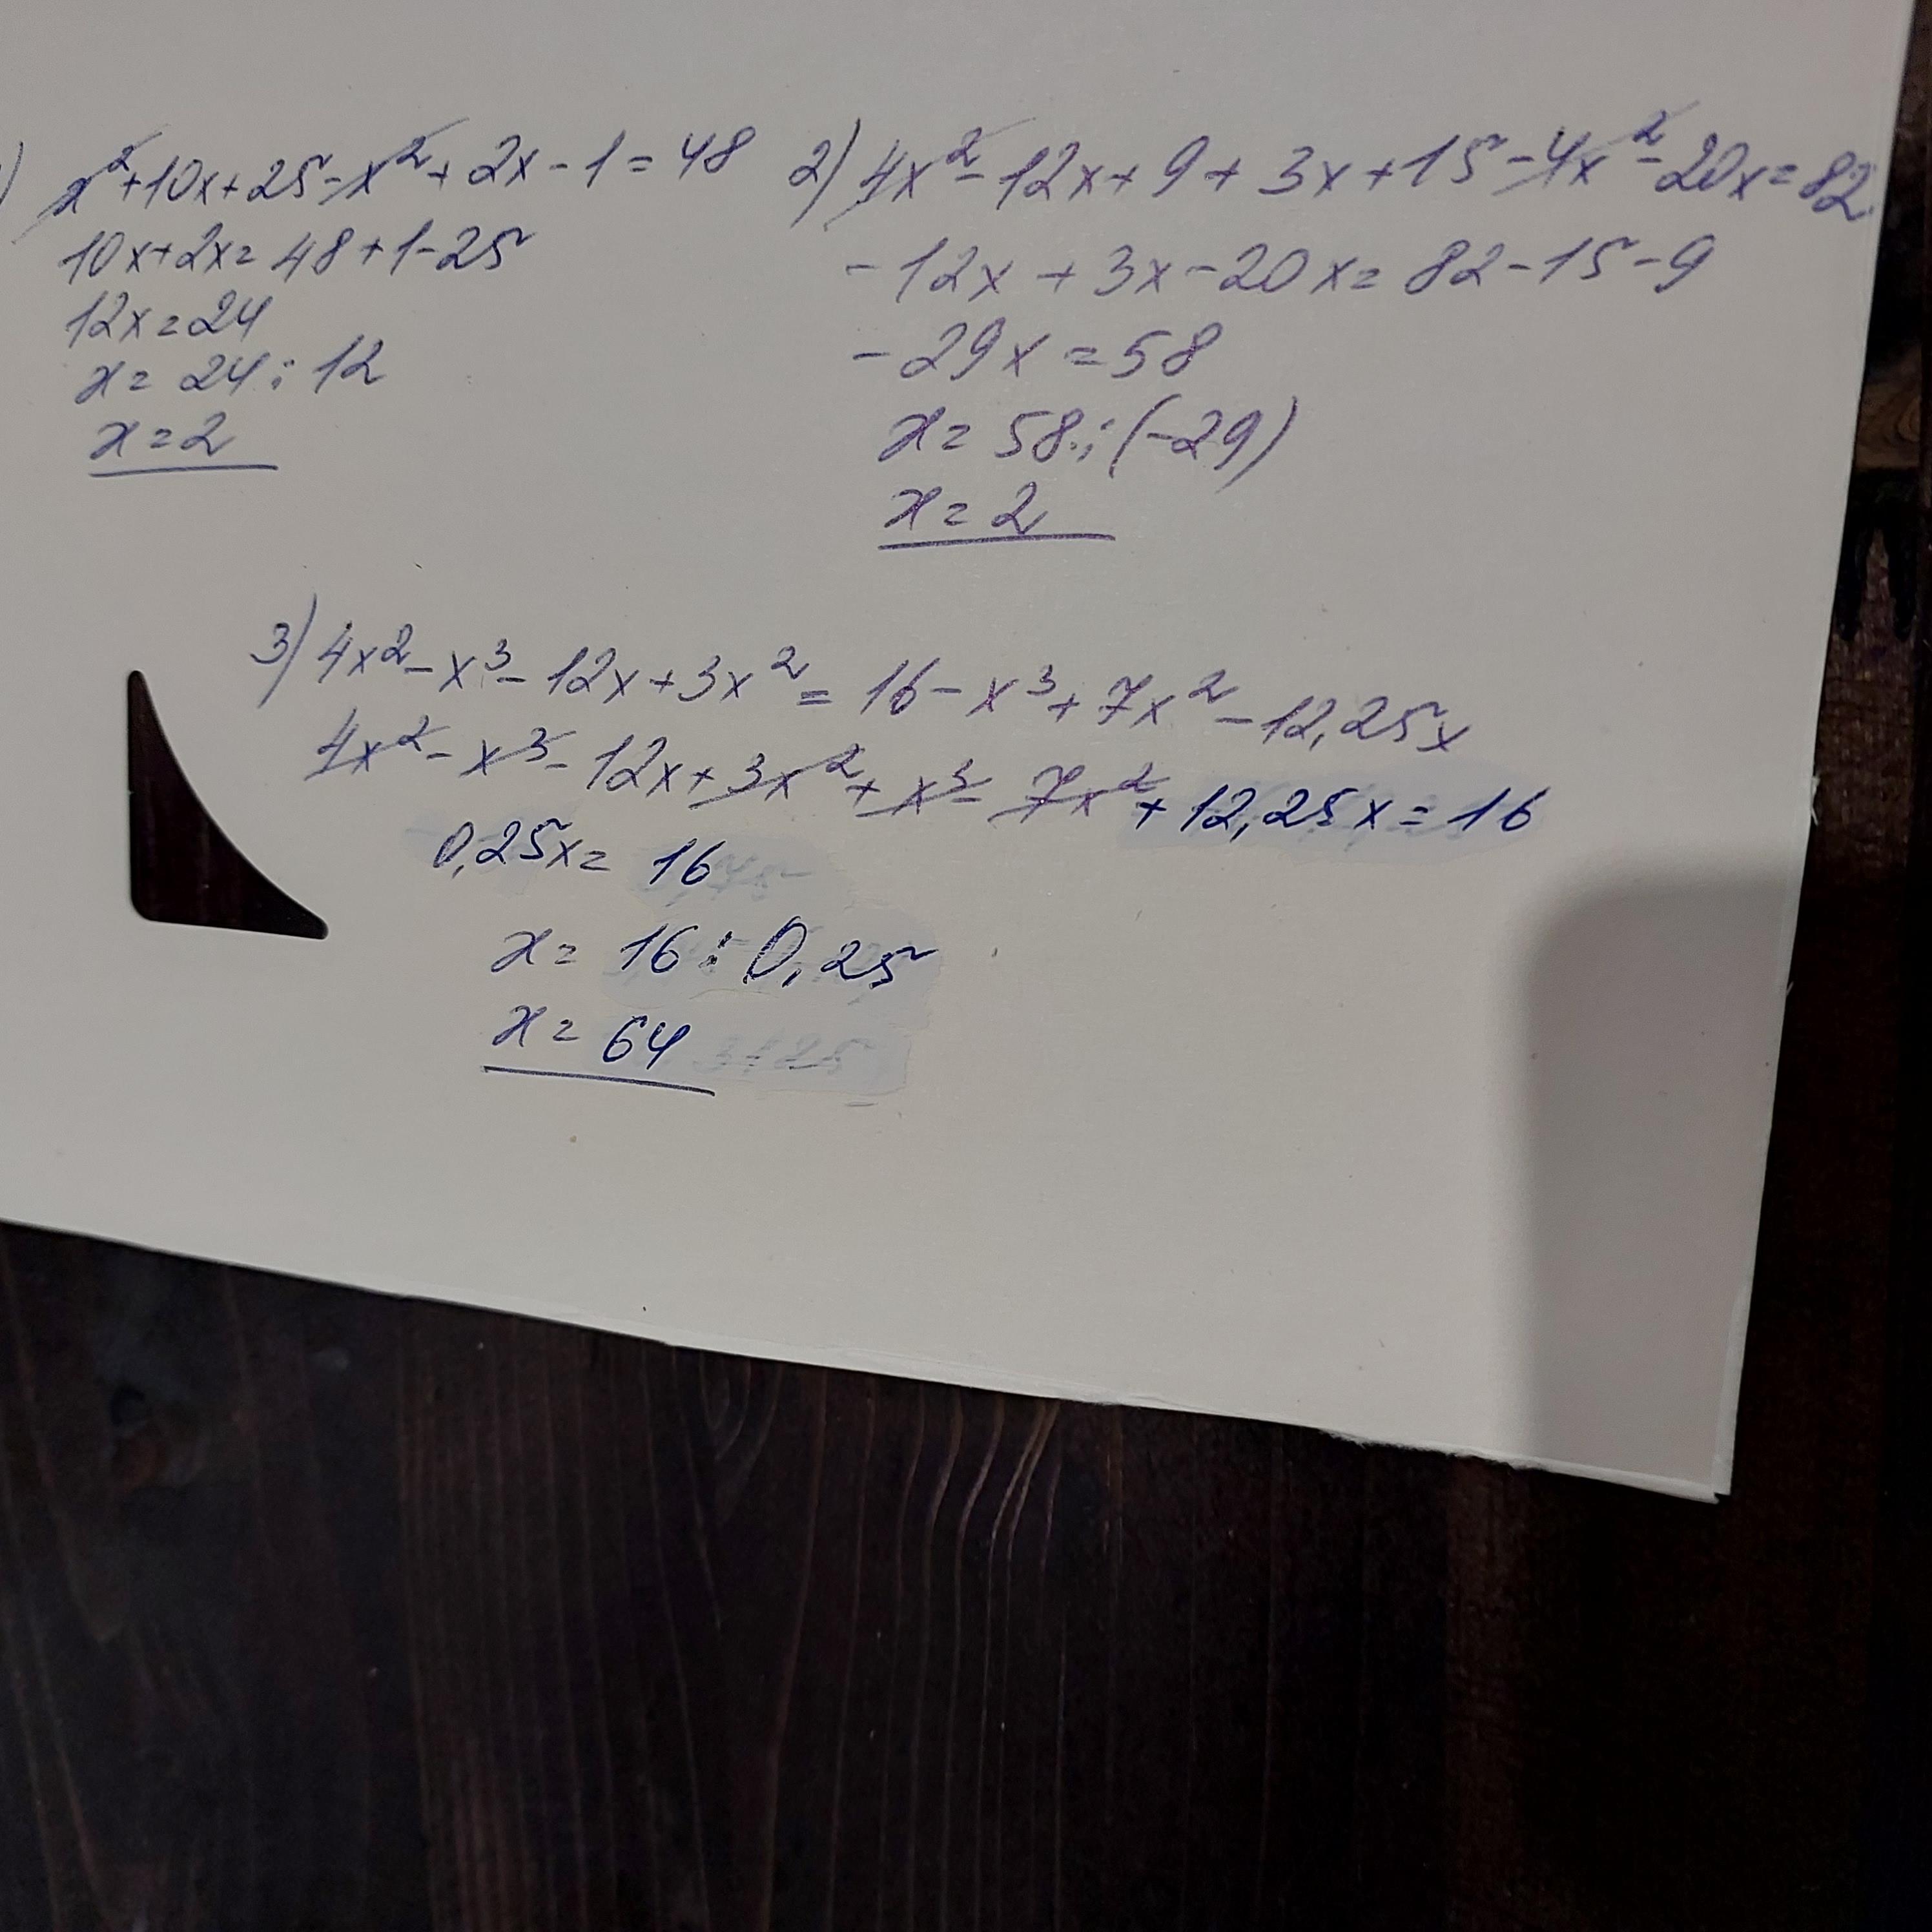 ) x²+10x+25-x²+2x-1=48
10x+2x=48+1-25
12x=24
x=24:12
x=2
2) 4x²-12x+9+3x+15-4x²-20x=82
-12x+3x-20x=82-15-9
-29x=58
x=58:(-29)
x=2
3) 4x²-x³-12x+3x²=16-x³+7x²-12,25x
4x²-x³-12x+3x²+x³-7x²+12,25x=16
0,25x=16
x=16:0,25
x=64